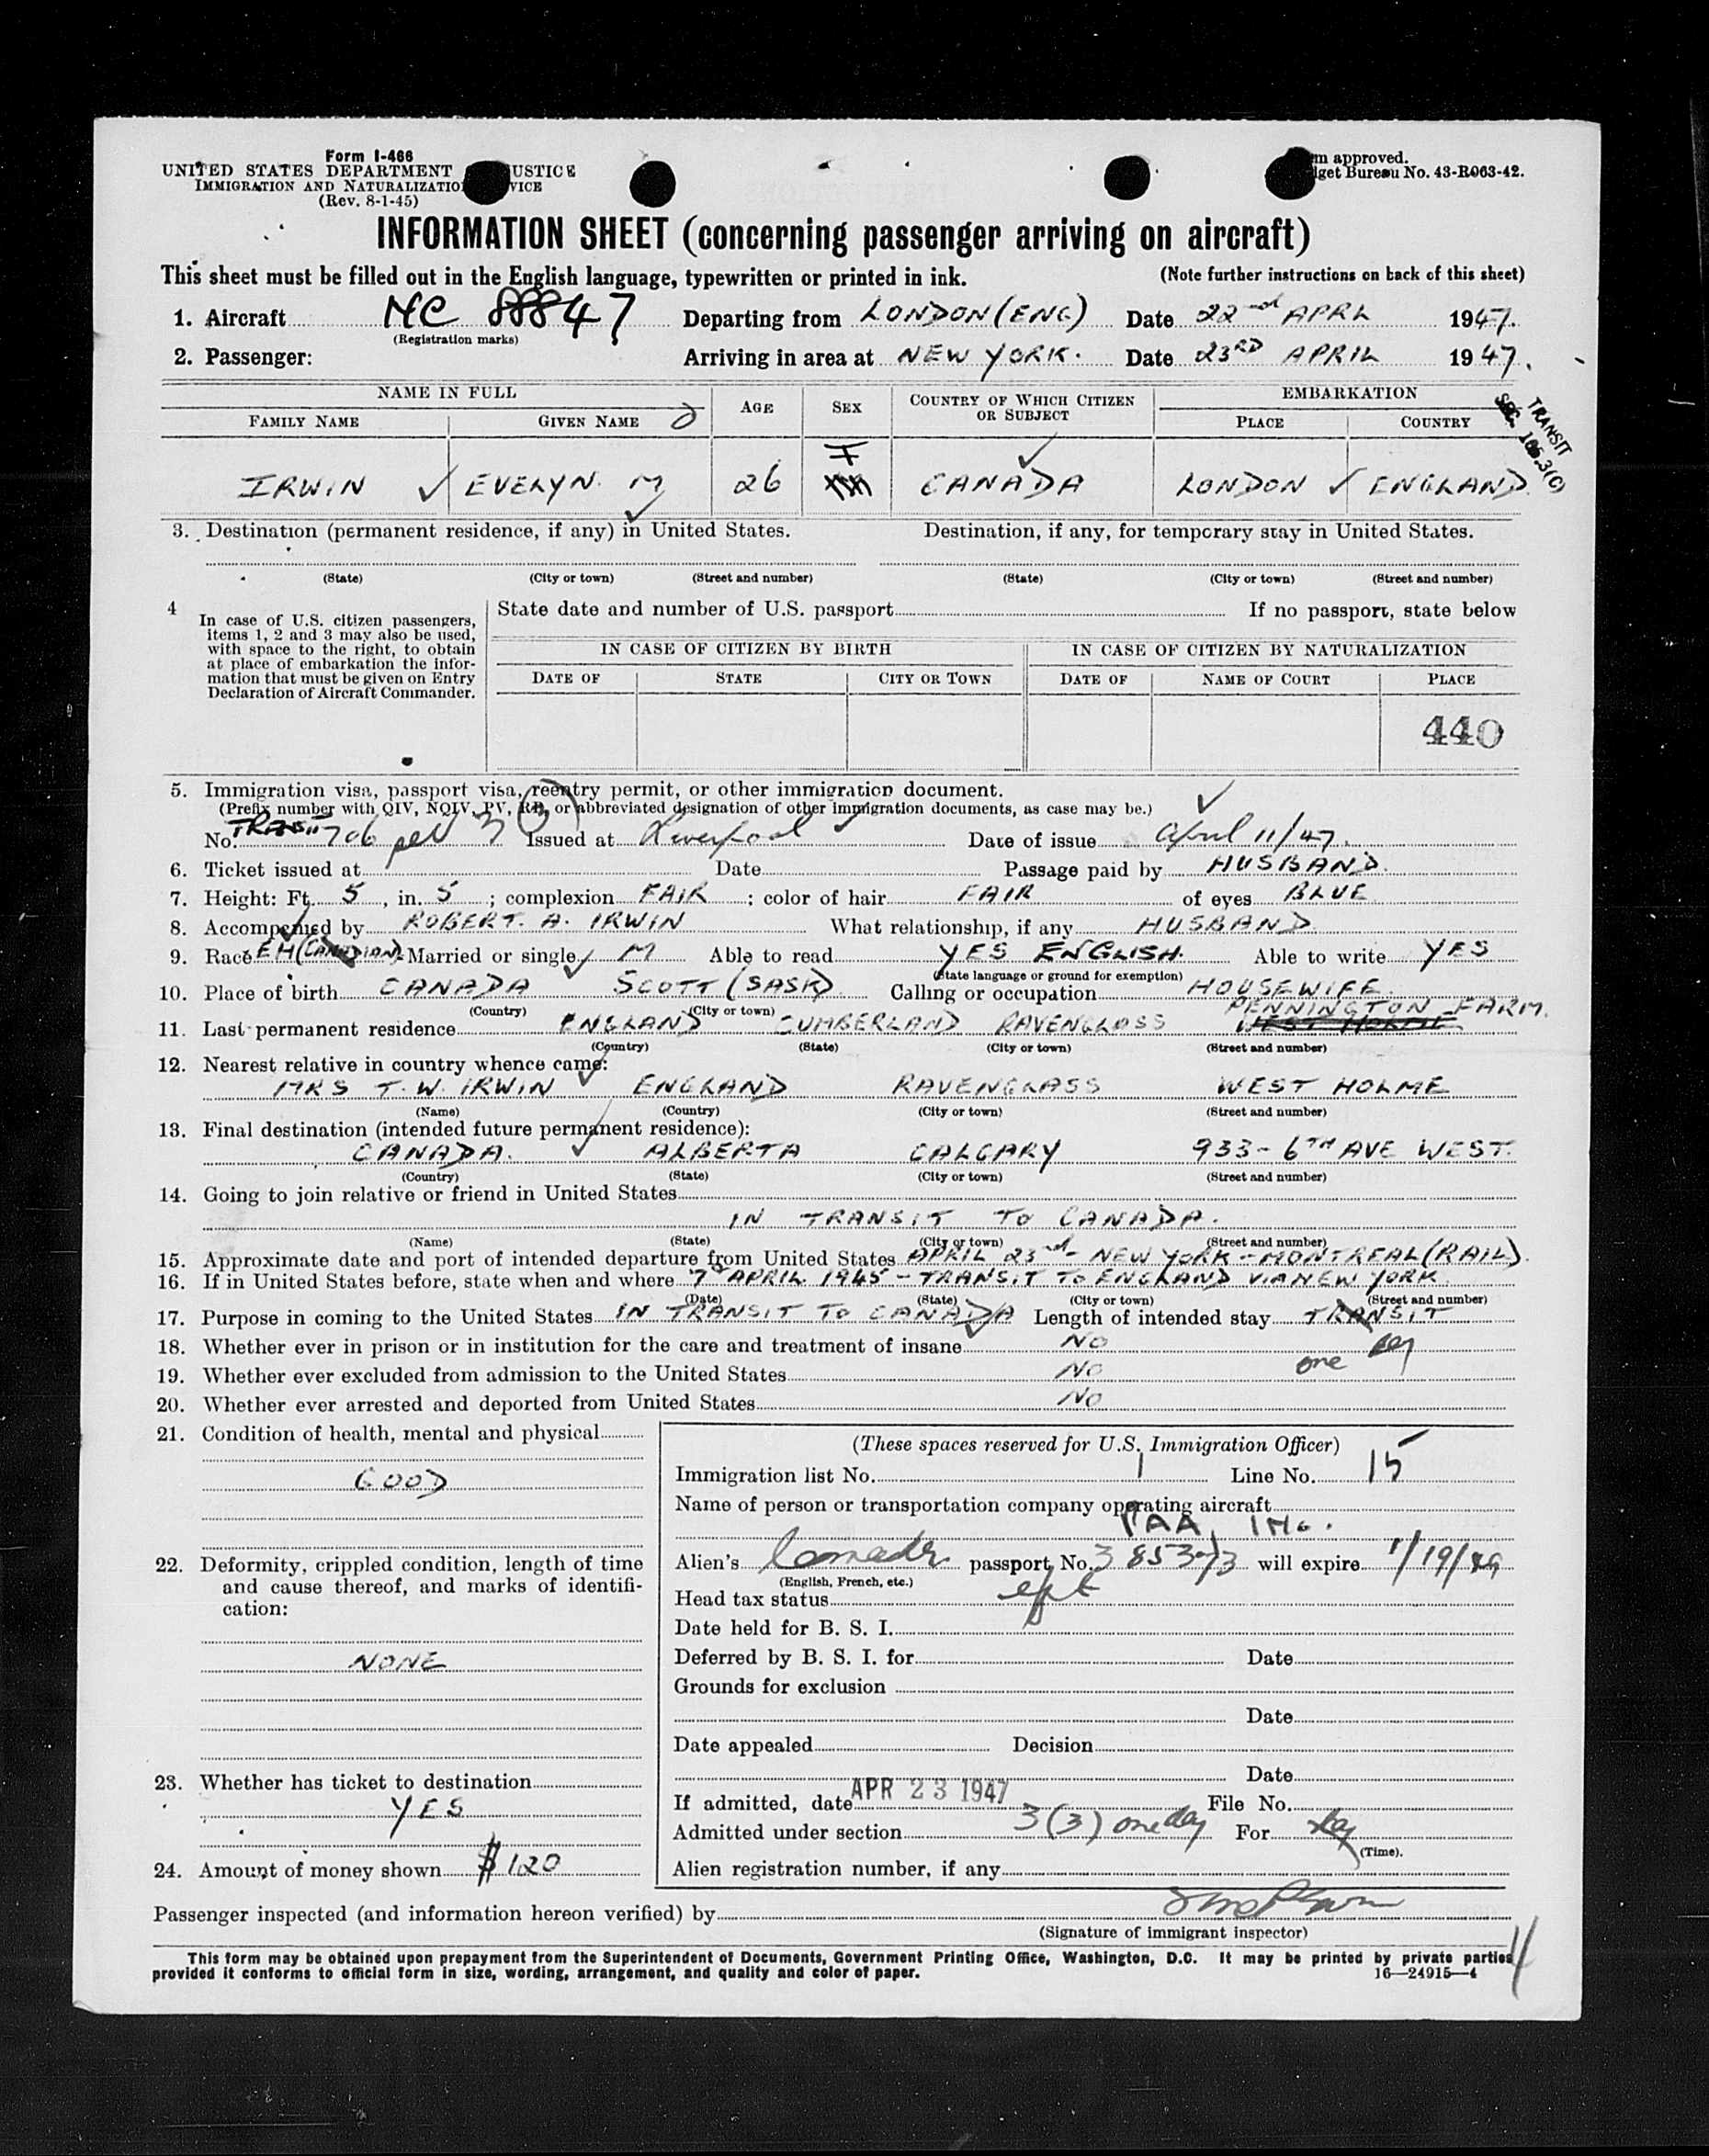 Form I-466
UNITED STATES DEPARTMENT USTICE
IMMIGRATION AND NATURALIZATIO VICE
(Rev. 8-1-45)
m approved.
get Bureau No. 43-R063-42.
INFORMATION SHEET (concerning passenger arriving on aircraft)
This sheet must be filled out in the English language, typewritten or printed in ink. (Note further instructions on back of this sheet)
1. Aircraft NC 88847 Departing from LONDON (ENG) Date 22nd APRL 1947.
(Registration marks)
2. Passenger: Arriving in area at NEW YORK. Date 23RD APRIL 1947.
NAME IN FULL AGE SEX COUNTRY OF WHICH CITIZEN OR SUBJECT EMBARKATION
FAMILY NAME GIVEN NAME PLACE COUNTRY
TRANSIT
SEC 3(C)
F
IRWIN EVELYN. M 26 CANADA LONDON ENGLAND
3. Destination (permanent residence, if any) in United States. Destination, if any, for temporary stay in United States.
(State) (City or town) (Street and number) (State) (City or town) (Street and number)
4 In case of U.S. citizen passengers, items 1, 2 and 3 may also be used, with space to the right, to obtain at place of embarkation the information that must be given on Entry Declaration of Aircraft Commander.
State date and number of U.S. passport If no passport, state below
IN CASE OF CITIZEN BY BIRTH IN CASE OF CITIZEN BY NATURALIZATION
DATE OF STATE CITY OR TOWN DATE OF NAME OF COURT PLACE
440
5. Immigration visa, passport visa, reentry permit, or other immigration document.
(Prefix number with QIV, NQIV, PV, RP, or abbreviated designation of other immigration documents, as case may be.)
No. Transit 706 Issued at Liverpool Date of issue April 11/47.
6. Ticket issued at Date Passage paid by HUSBAND.
7. Height: Ft. 5, in. 5; complexion FAIR; color of hair FAIR of eyes BLUE
8. Accompanied by ROBERT. A. IRWIN What relationship, if any HUSBAND
9. Race (CANADIAN) Married or single M Able to read YES ENGLISH. Able to write YES
(State language or ground for exemption)
10. Place of birth CANADA SCOTT (SASK) Calling or occupation HOUSEWIFE.
(Country) (City or town)
PENNINGTON FARM.
11. Last permanent residence ENGLAND CUMBERLAND RAVENGLASS WEST HOLME
(Country) (State) (City or town) (Street and number)
12. Nearest relative in country whence came:
MRS T. W. IRWIN ENGLAND RAVENGLASS WEST HOLME
(Name) (Country) (City or town) (Street and number)
13. Final destination (intended future permanent residence):
CANADA. ALBERTA CALGARY 933-6TH AVE WEST.
(Country) (State) (City or town) (Street and number)
14. Going to join relative or friend in United States
IN TRANSIT TO CANADA.
(Name) (State) (City or town) (Street and number)
15. Approximate date and port of intended departure from United States APRIL 23rd - NEW YORK - MONTREAL (RAIL).
16. If in United States before, state when and where 7th APRIL 1945 - TRANSIT TO ENGLAND VIA NEW YORK
(Date) (State) (City or town) (Street and number)
17. Purpose in coming to the United States IN TRANSIT TO CANADA Length of intended stay TRANSIT
18. Whether ever in prison or in institution for the care and treatment of insane NO
one day
19. Whether ever excluded from admission to the United States NO
20. Whether ever arrested and deported from United States NO
21. Condition of health, mental and physical
GOOD
22. Deformity, crippled condition, length of time and cause thereof, and marks of identification:
NONE
23. Whether has ticket to destination
YES
24. Amount of money shown $120
(These spaces reserved for U.S. Immigration Officer)
Immigration list No. 1 Line No. 15
Name of person or transportation company operating aircraft
PAA, INC.
Alien's Canadn passport No. 3 85373 will expire 1/19/49
(English, French, etc.)
Head tax status
Date held for B. S. I.
Deferred by B. S. I. for Date
Grounds for exclusion
Date
Date appealed Decision
Date
If admitted, date APR 23 1947 File No.
Admitted under section 3(3) one day For day
(Time).
Alien registration number, if any
Passenger inspected (and information hereon verified) by
(Signature of immigrant inspector)
This form may be obtained upon prepayment from the Superintendent of Documents, Government Printing Office, Washington, D.C. It may be printed by private parties
provided it conforms to official form in size, wording, arrangement, and quality and color of paper. 16—24915—4